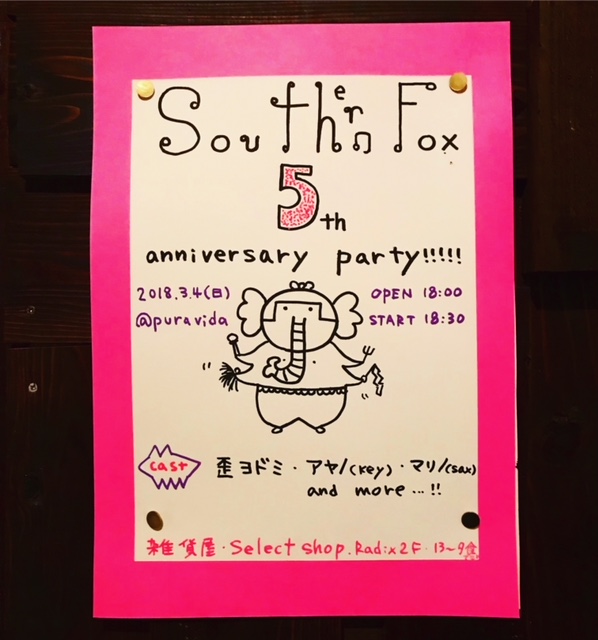 Southern Fox
5th
anniversary party!!!!!
2018.3.4(日) OPEN 18:00
@puravida START 18:30
cast 歪ヨドミ・アヤノ(key)・マリノ(sax)
and more...!!
雑貨屋・Select shop. Radix2F・13〜9